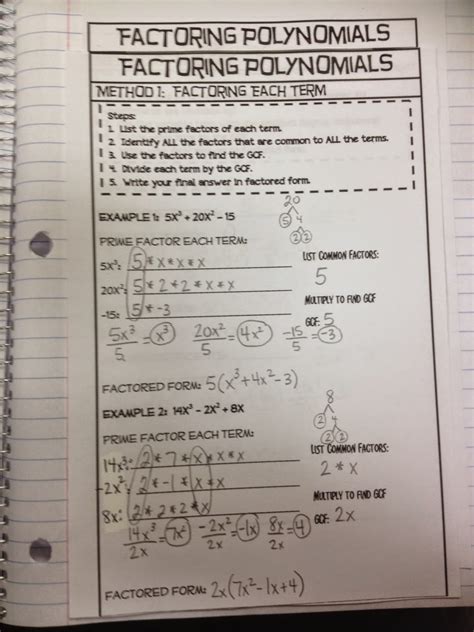 FACTORING POLYNOMIALS
FACTORING POLYNOMIALS
METHOD 1: FACTORING EACH TERM
Steps:
1. List the prime factors of each term.
2. Identify ALL the factors that are common to ALL the terms.
3. Use the factors to find the GCF.
4. Divide each term by the GCF.
5. Write your final answer in factored form.
20
5 4
2 2
EXAMPLE 1: 5X³ + 20X² - 15
PRIME FACTOR EACH TERM:
LIST COMMON FACTORS:
5X³: 5 * x * x * x
5
20X²: 5 * 2 * 2 * x * x
MULTIPLY TO FIND GCF
-15: 5 * -3
GCF: 5
5x³/5 = x³ 20x²/5 = 4x² -15/5 = -3
FACTORED FORM: 5(x³+4x²-3)
EXAMPLE 2: 14X³ - 2X² + 8X
8
2 4
2 2
PRIME FACTOR EACH TERM:
LIST COMMON FACTORS:
14x³: 2 * 7 * x * x * x
2 * x
-2x²: 2 * -1 * x * x
MULTIPLY TO FIND GCF
8x: 2 * 2 * 2 * x
GCF: 2x
14x³/2x = 7x² -2x²/2x = -1x 8x/2x = 4
FACTORED FORM: 2x(7x²-1x+4)